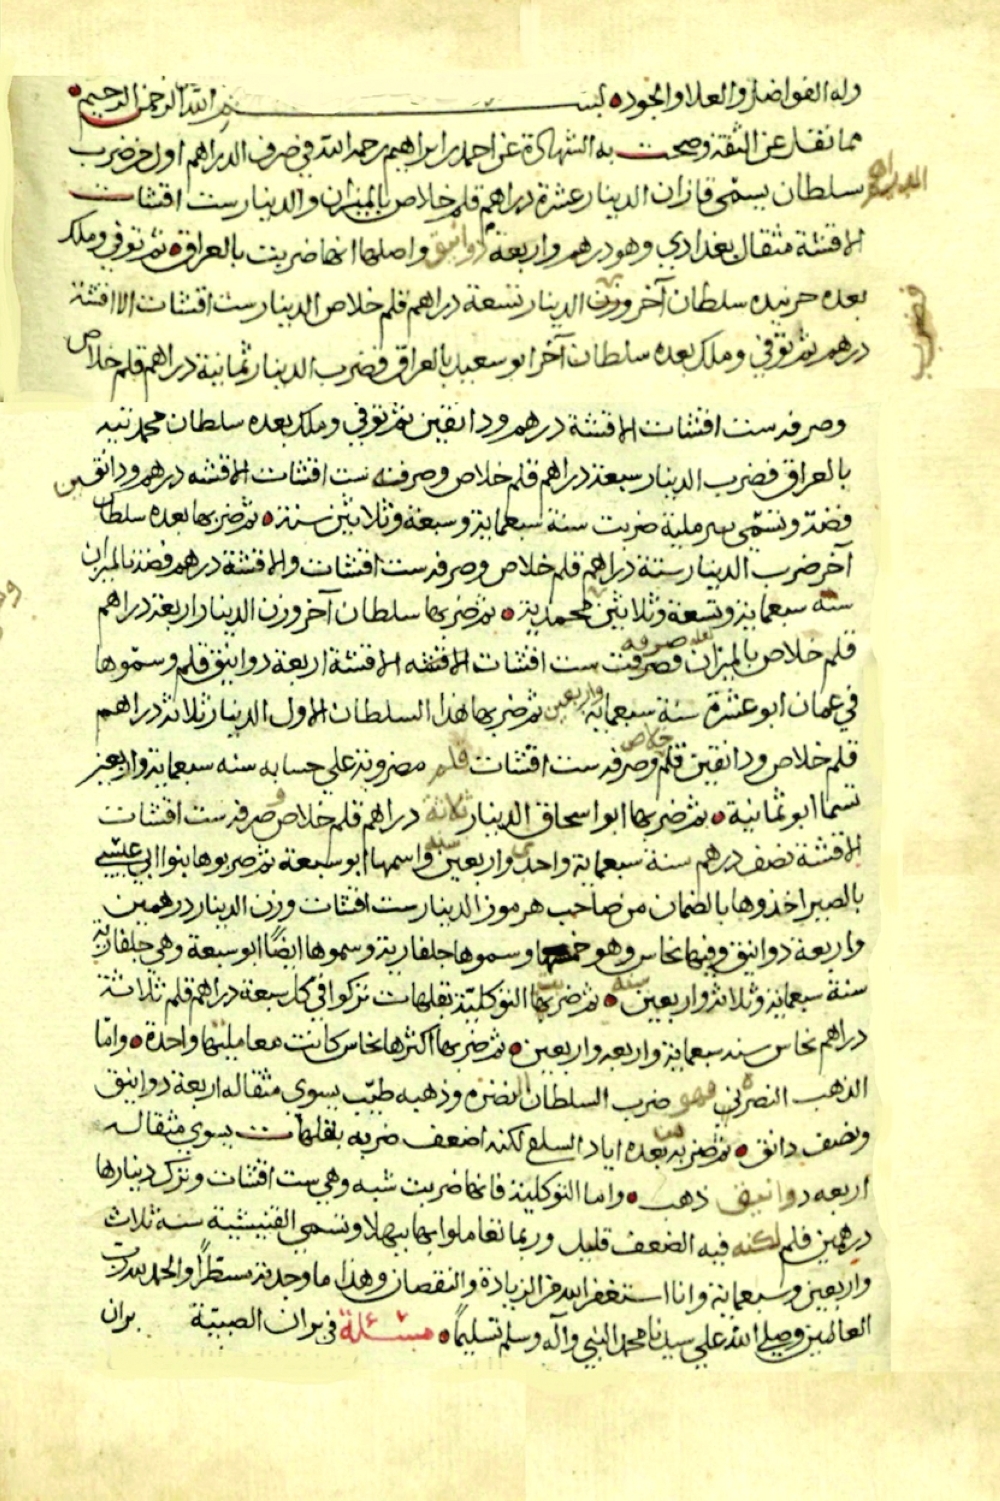 وله الفواضل والعلا والجود بســـــم الله الرحمن الرحيم
مما نقل عن الثقة وصحت به الشهادة عن احمد بن ابراهيم رحمه الله في صرف الدراهم اول من ضرب
الدراهم
سلطان يسمى قازان الدينار عشرة دراهم قلم خلاص بالميزان والدينار ست اقشات
الاقشة مثقال بغدادي وهو درهم واربعة دوانيق واصلها انها ضربت بالعراق ثم توفي وملك
بعده سلطان آخر ووزن الدينار تسعة دراهم قلم خلاص الدينار ست اقشات الاقشة
فضرب
درهم ثم توفي وملك بعده سلطان آخر ابو سعيد بالعراق فضرب الدينار ثمانية دراهم قلم خلاص
وصرفه ست اقشات الاقشة درهم ودانقين ثم توفي وملك بعده سلطان محمد
بالعراق فضرب الدينار سبعة دراهم قلم خلاص وصرفته ست اقشات الاقشه درهم ودانقين
فضة وتسمى ضربت سنة سبعماية وسبعة وثلاثين سنة ثم ضربها بعده سلطان
آخر ضرب الدينار ستة دراهم قلم خلاص وصرفه ست اقشات والاقشة درهم فضة بالميزان
سنه سبعماية وتسعة وثلاثين محمدية ثم ضربها سلطان آخر وزن الدينار اربعة دراهم
لعله صرفه
قلم خلاص بالميزان وصرفت ست اقشات الاقشه الاقشة اربعة دوانيق قلم وسموها
في عمان ابو عشرة سنة سبعمايه واربعين ثم ضربها هذا السلطان الاول الدينار ثلاثة دراهم
قلم خلاص ودانقين قلم خلاص وصرفه ست اقشات قلم مضروبة على حسابه سنه سبعماية واربعين
تسما ابو ثمانية ثم ضربها ابو اسحاق الدينار ثلاثة دراهم قلم خلاص وصرفه ست اقشات
الاقشة نصف درهم سنة سبعماية واحدى واربعين سنه واسمها ابو سبعة ثم ضربوها بنوا ابي عيشي
بالصير اخذوها بالضمان من صاحب هرموز الدينار ست اقشات وزن الدينار درهمين
واربعة دوانيق وفيها نحاس وهو وسموها جلفارية وسموها ايضًا ابو سبعة وهي جلفارية
سنة سبعماية وثلاثة واربعين سنة ثم ضربت بها التوكلية بقلهات تركوا في كل سبعة دراهم قلم ثلاثة
دراهم نحاس سنه سبعماية واربعه واربعين ثم ضربها اكثرها نحاس كانت معاملتها واحدة واما
الذهب النصرني فهو ضرب السلطان النضره وذهبه طيّب يسوى مثقاله اربعة دوانيق
ونصف دانق ثم ضربه بعده اياد السلع لكنه اضعف ضربه بقلهات يسوي مثقاله
اربعه دوانيق ذهب واما التوكلية فانها ضربت شبه وهي ست اقشات وترك دينارها
درهمين قلم لكنه فيه الضعف قليل وربما تعاملوا بها ببهلا وتسمى القنبيشية سنة ثلاث
واربعين وسبعماية وانا استغفر الله من الزيادة والنقصان وهذا ما وجدته مسطرًا والحمد لله رب
العالمين وصلى الله على سيدنا محمد النبي وآله وسلم تسليمًا مسئلة في بران الصبيّة بران